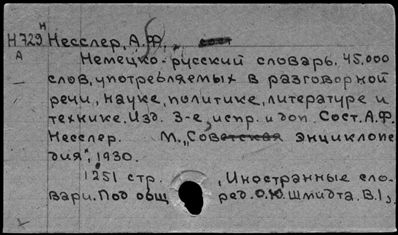 Н729 Несслер, А.Ф.,
А
Немецко-русский словарь, 45.000
слов, употребляемых в разговорной
речи, науке, политике, литературе и
технике. Изд. 3-е, испр. и доп. Сост. А.Ф.
Несслер. М., „Советская энциклопе-
дия", 1930.
1251 стр. „Иностранные сло-
вари. Под общ ред. О.Ю. Шмидта. В.1„